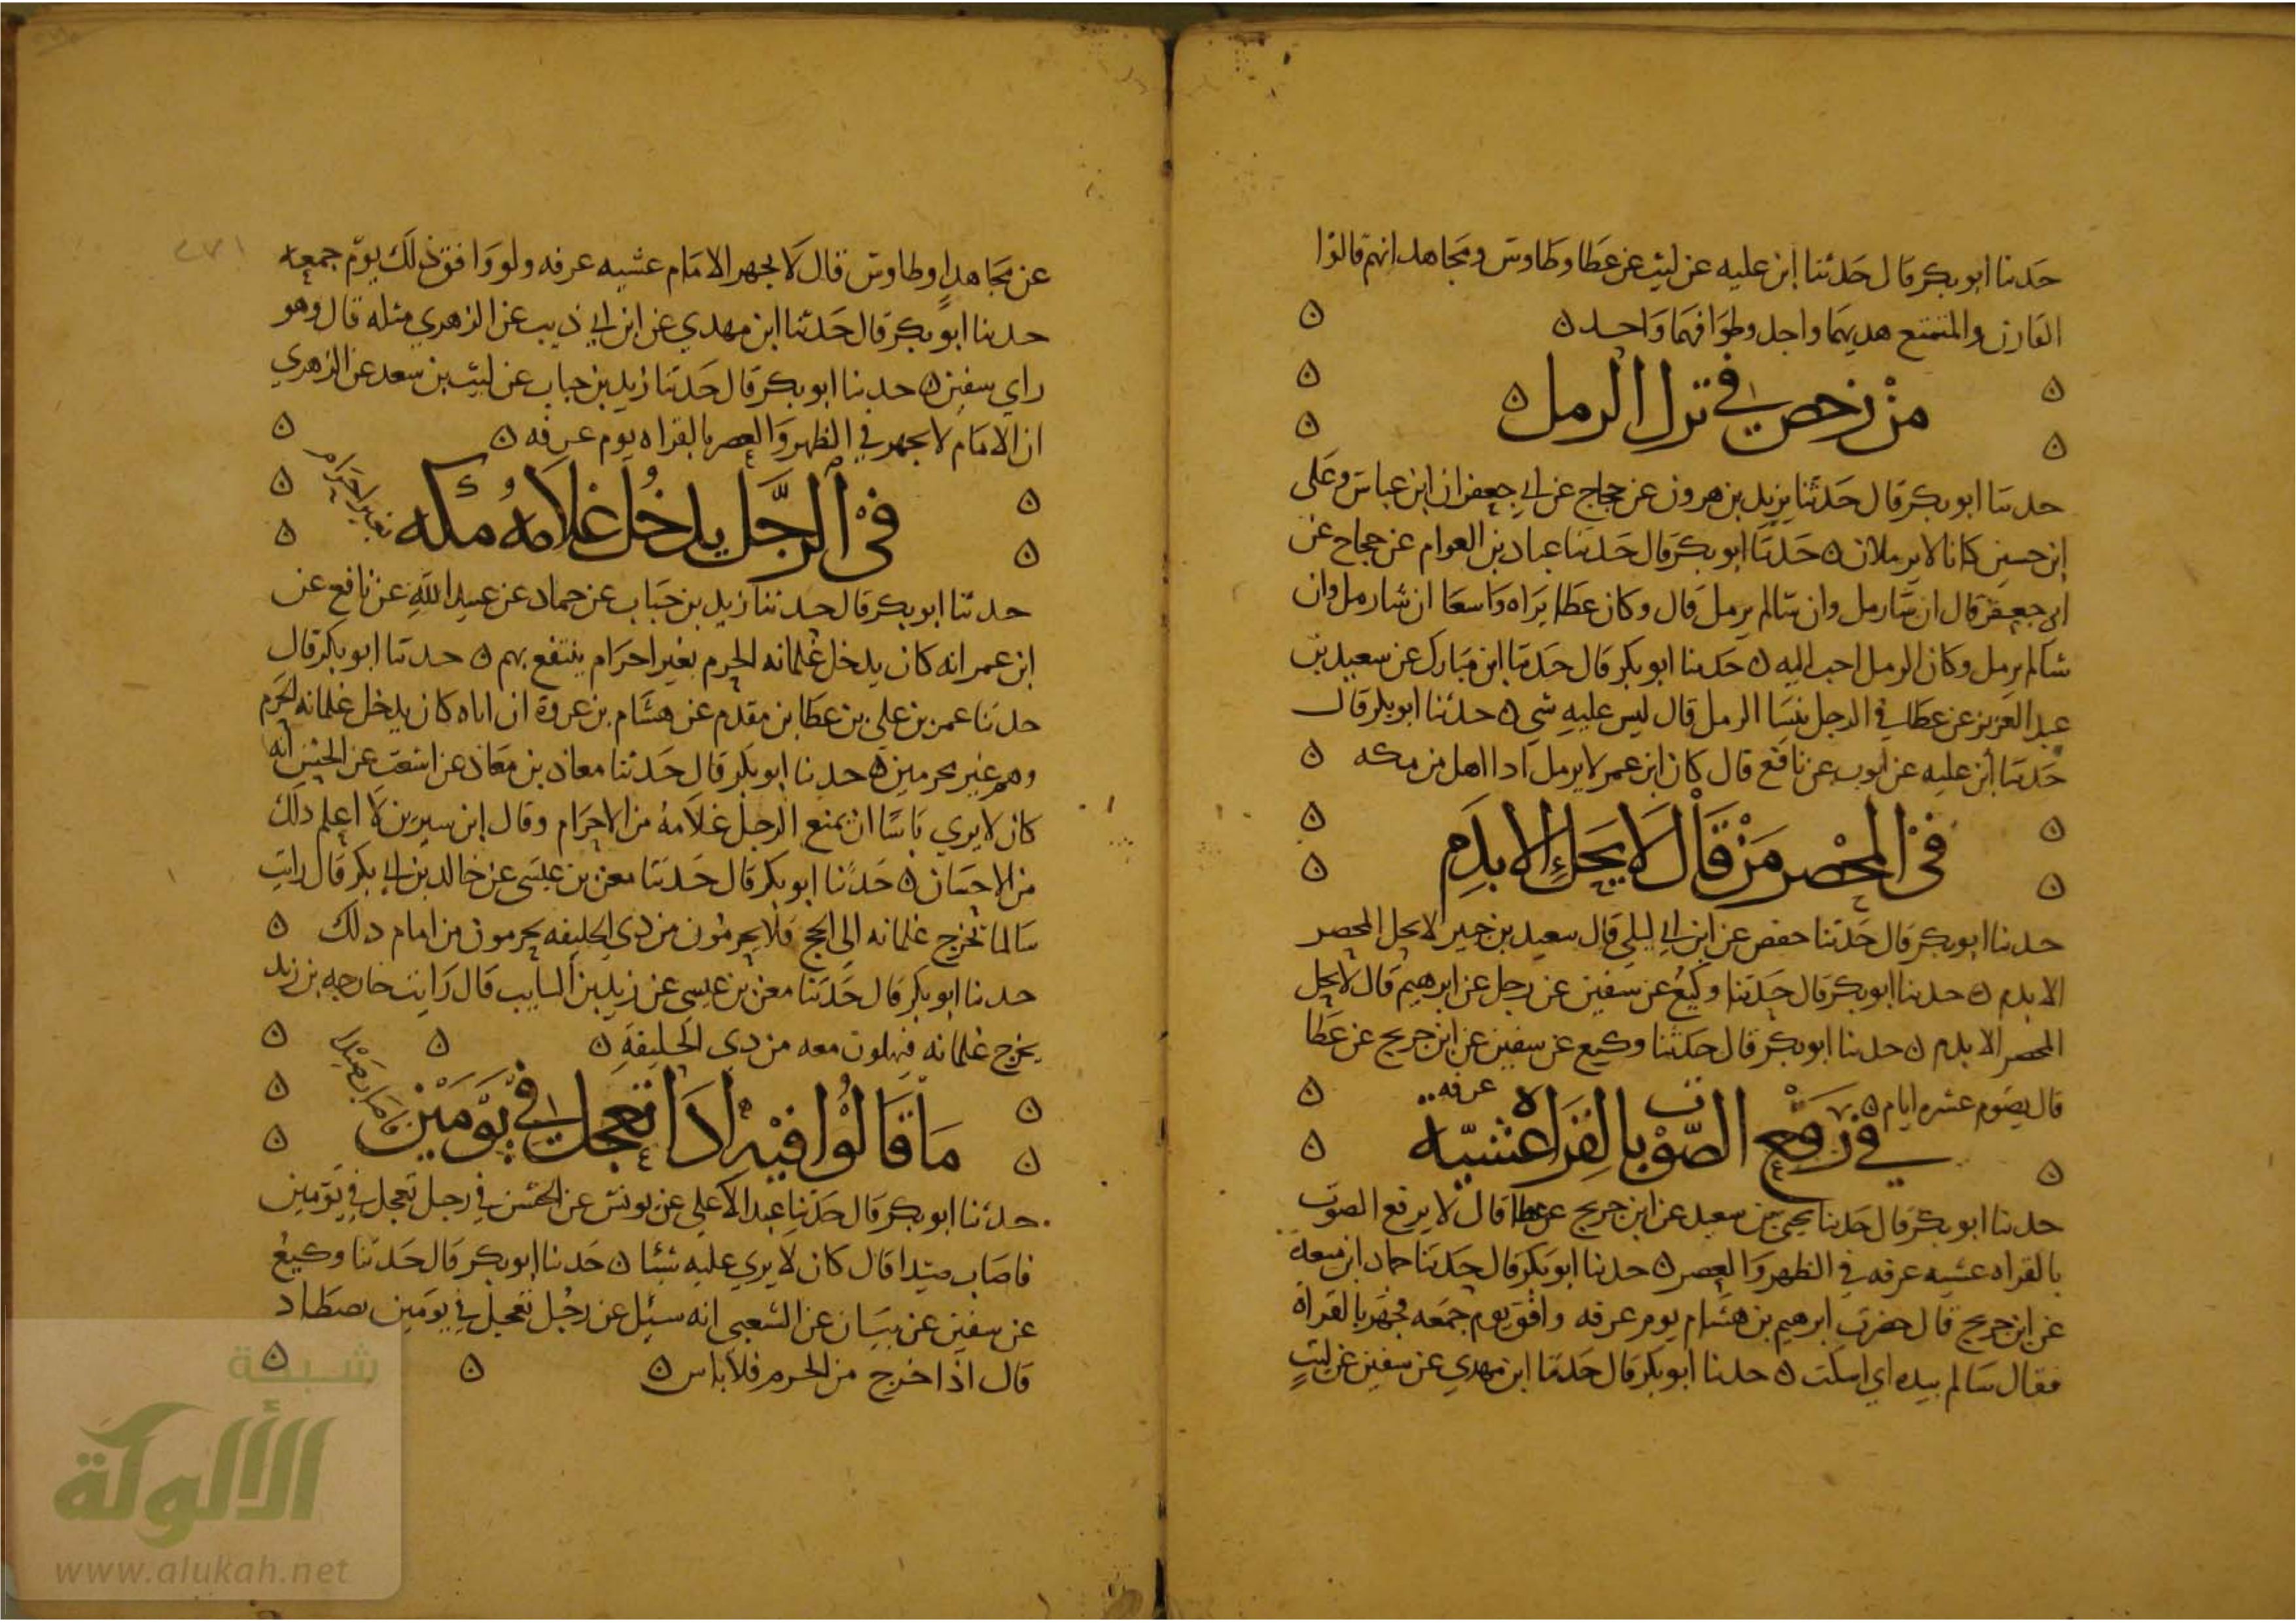 حدثنا ابو بكر قال حدثنا ابن عليه عن ليث عن عطا وطاوس ومجاهد انهم قالوا
القارن والمتمتع هديهما واحد وطوافهما واحد ه
من رخص في ترك الرمل ه
حدثنا ابو بكر قال حدثنا يزيد بن هرون عن حجاج عن ابي جعفر ان ابن عباس وعلى
ابن حسين كانا لا يرملان ه حدثنا ابو بكر قال حدثنا عباد بن العوام عن حجاج عن
ابي جعفر قال ان شا رمل وان شا لم يرمل قال وكان عطا يراه واسعا ان شا رمل وان
شا لم يرمل وكان الرمل احب اليه ه حدثنا ابو بكر قال حدثنا ابن مبارك عن سعيد بن
عبد العزيز عن عطا في الرجل ينسا الرمل قال ليس عليه شي ه حدثنا ابو بكر قال
حدثنا ابن عليه عن ايوب عن نافع قال كان ابن عمر لا يرمل اذا اهل من مكه
في المحصر من قال لا يحل الا بدم
حدثنا ابو بكر قال حدثنا حفص عن ابن ابي ليلي قال سعيد بن جبير لا يحل المحصر
الا بدم ه حدثنا ابو بكر قال حدثنا وكيع عن سفين عن رجل عن ابرهيم قال لا يحل
المحصر الا بدم ه حدثنا ابو بكر قال حدثنا وكيع عن سفين عن ابن جريج عن عطا
قال يصوم عشره ايام ه
في رفع الصوت بالقراة عشية عرفه
حدثنا ابو بكر قال حدثنا يحيى بن سعيد عن ابن جريج عن عطا قال لا يرفع الصوت
بالقراه عشيه عرفه في الظهر والعصر ه حدثنا ابو بكر قال حدثنا حماد ابن مسعدة
عن ابن جريج قال حضرت ابرهيم بن هشام يوم عرفه وافق يوم جمعه فجهر بالقراة
فقال سالم بيده اي اسكت ه حدثنا ابو بكر قال حدثنا ابن مهدي عن سفين عن ليث
عن مجاهد او طاوس قال لا يجهر الامام عشيه عرفه ولو وافق ذلك يوم جمعه
حدثنا ابو بكر قال حدثنا ابن مهدي عن ابن ابي ذيب عن الزهري مثله قال وهو
راي سفين ه حدثنا ابو بكر قال حدثنا زيد بن حباب عن ليث بن سعد عن الزهري
ان الامام لا يجهر في الظهر والعصر بالقراه يوم عرفه ه
في الرجل يدخل غلامه مكه بغير احرام
حدثنا ابو بكر قال حدثنا زيد بن حباب عن حماد عن عبيد الله عن نافع عن
ابن عمر انه كان يدخل غلمانه الحرم بغير احرام ينتفع بهم ه حدثنا ابو بكر قال
حدثنا عمر بن علي بن عطا بن مقدم عن هشام بن عروة ان اباه كان يدخل غلمانه الحرم
وهم غير محرمين ه حدثنا ابو بكر قال حدثنا معاذ بن معاذ عن اشعث عن الحسن انه
كان لا يري باسا ان يمنع الرجل غلامه من الاحرام وقال ابن سيرين لا اعلم ذلك
من الاحسان ه حدثنا ابو بكر قال حدثنا معن بن عيسى عن خالد بن ابي بكر قال رايت
سالما تخرج غلمانه الي الحج فلا يحرمون من ذي الحليفه يحرمون من امام ذلك
حدثنا ابو بكر قال حدثنا معن بن عيسى عن زيد بن السايب قال رايت خارجه بن زيد
يخرج غلمانه فيهلون معه من ذي الحليفة ه
ما قالوا فيه اذا تعجل في يومين فاصاب صيدا
حدثنا ابو بكر قال حدثنا عبد الاعلي عن يونس عن الحسن في رجل تعجل في يومين
فاصاب صيدا قال كان لا يري عليه شيئا ه حدثنا ابو بكر قال حدثنا وكيع
عن سفين عن بيان عن الشعبي انه سئل عن رجل تعجل في يومين يصطاد
قال اذا خرج من الحرم فلا باس ه
شبكة
الألوكة
www.alukah.net